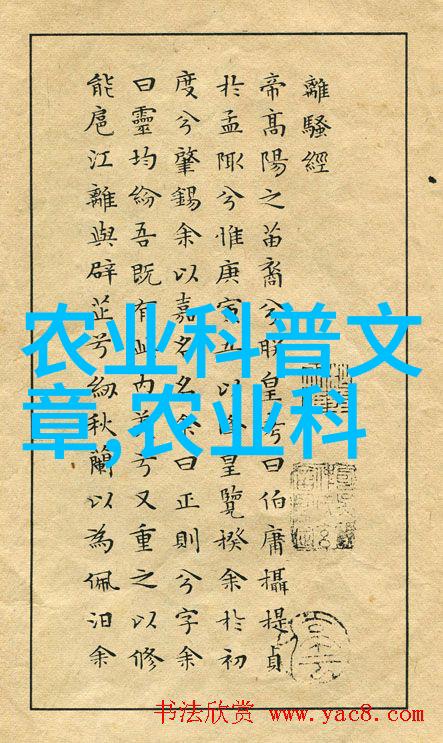 離騷經
帝高陽之苗裔兮朕皇考曰伯庸攝提貞
於孟陬兮惟庚寅吾以降皇覽揆余於初
度兮肇錫余以嘉名名余曰正則兮字余
曰靈均紛吾既有此內美兮又重之以修
能扈江離與辟芷兮紉秋蘭以為佩汩余
农业科普文
章,农业科
书法欣赏 www.yac8.com